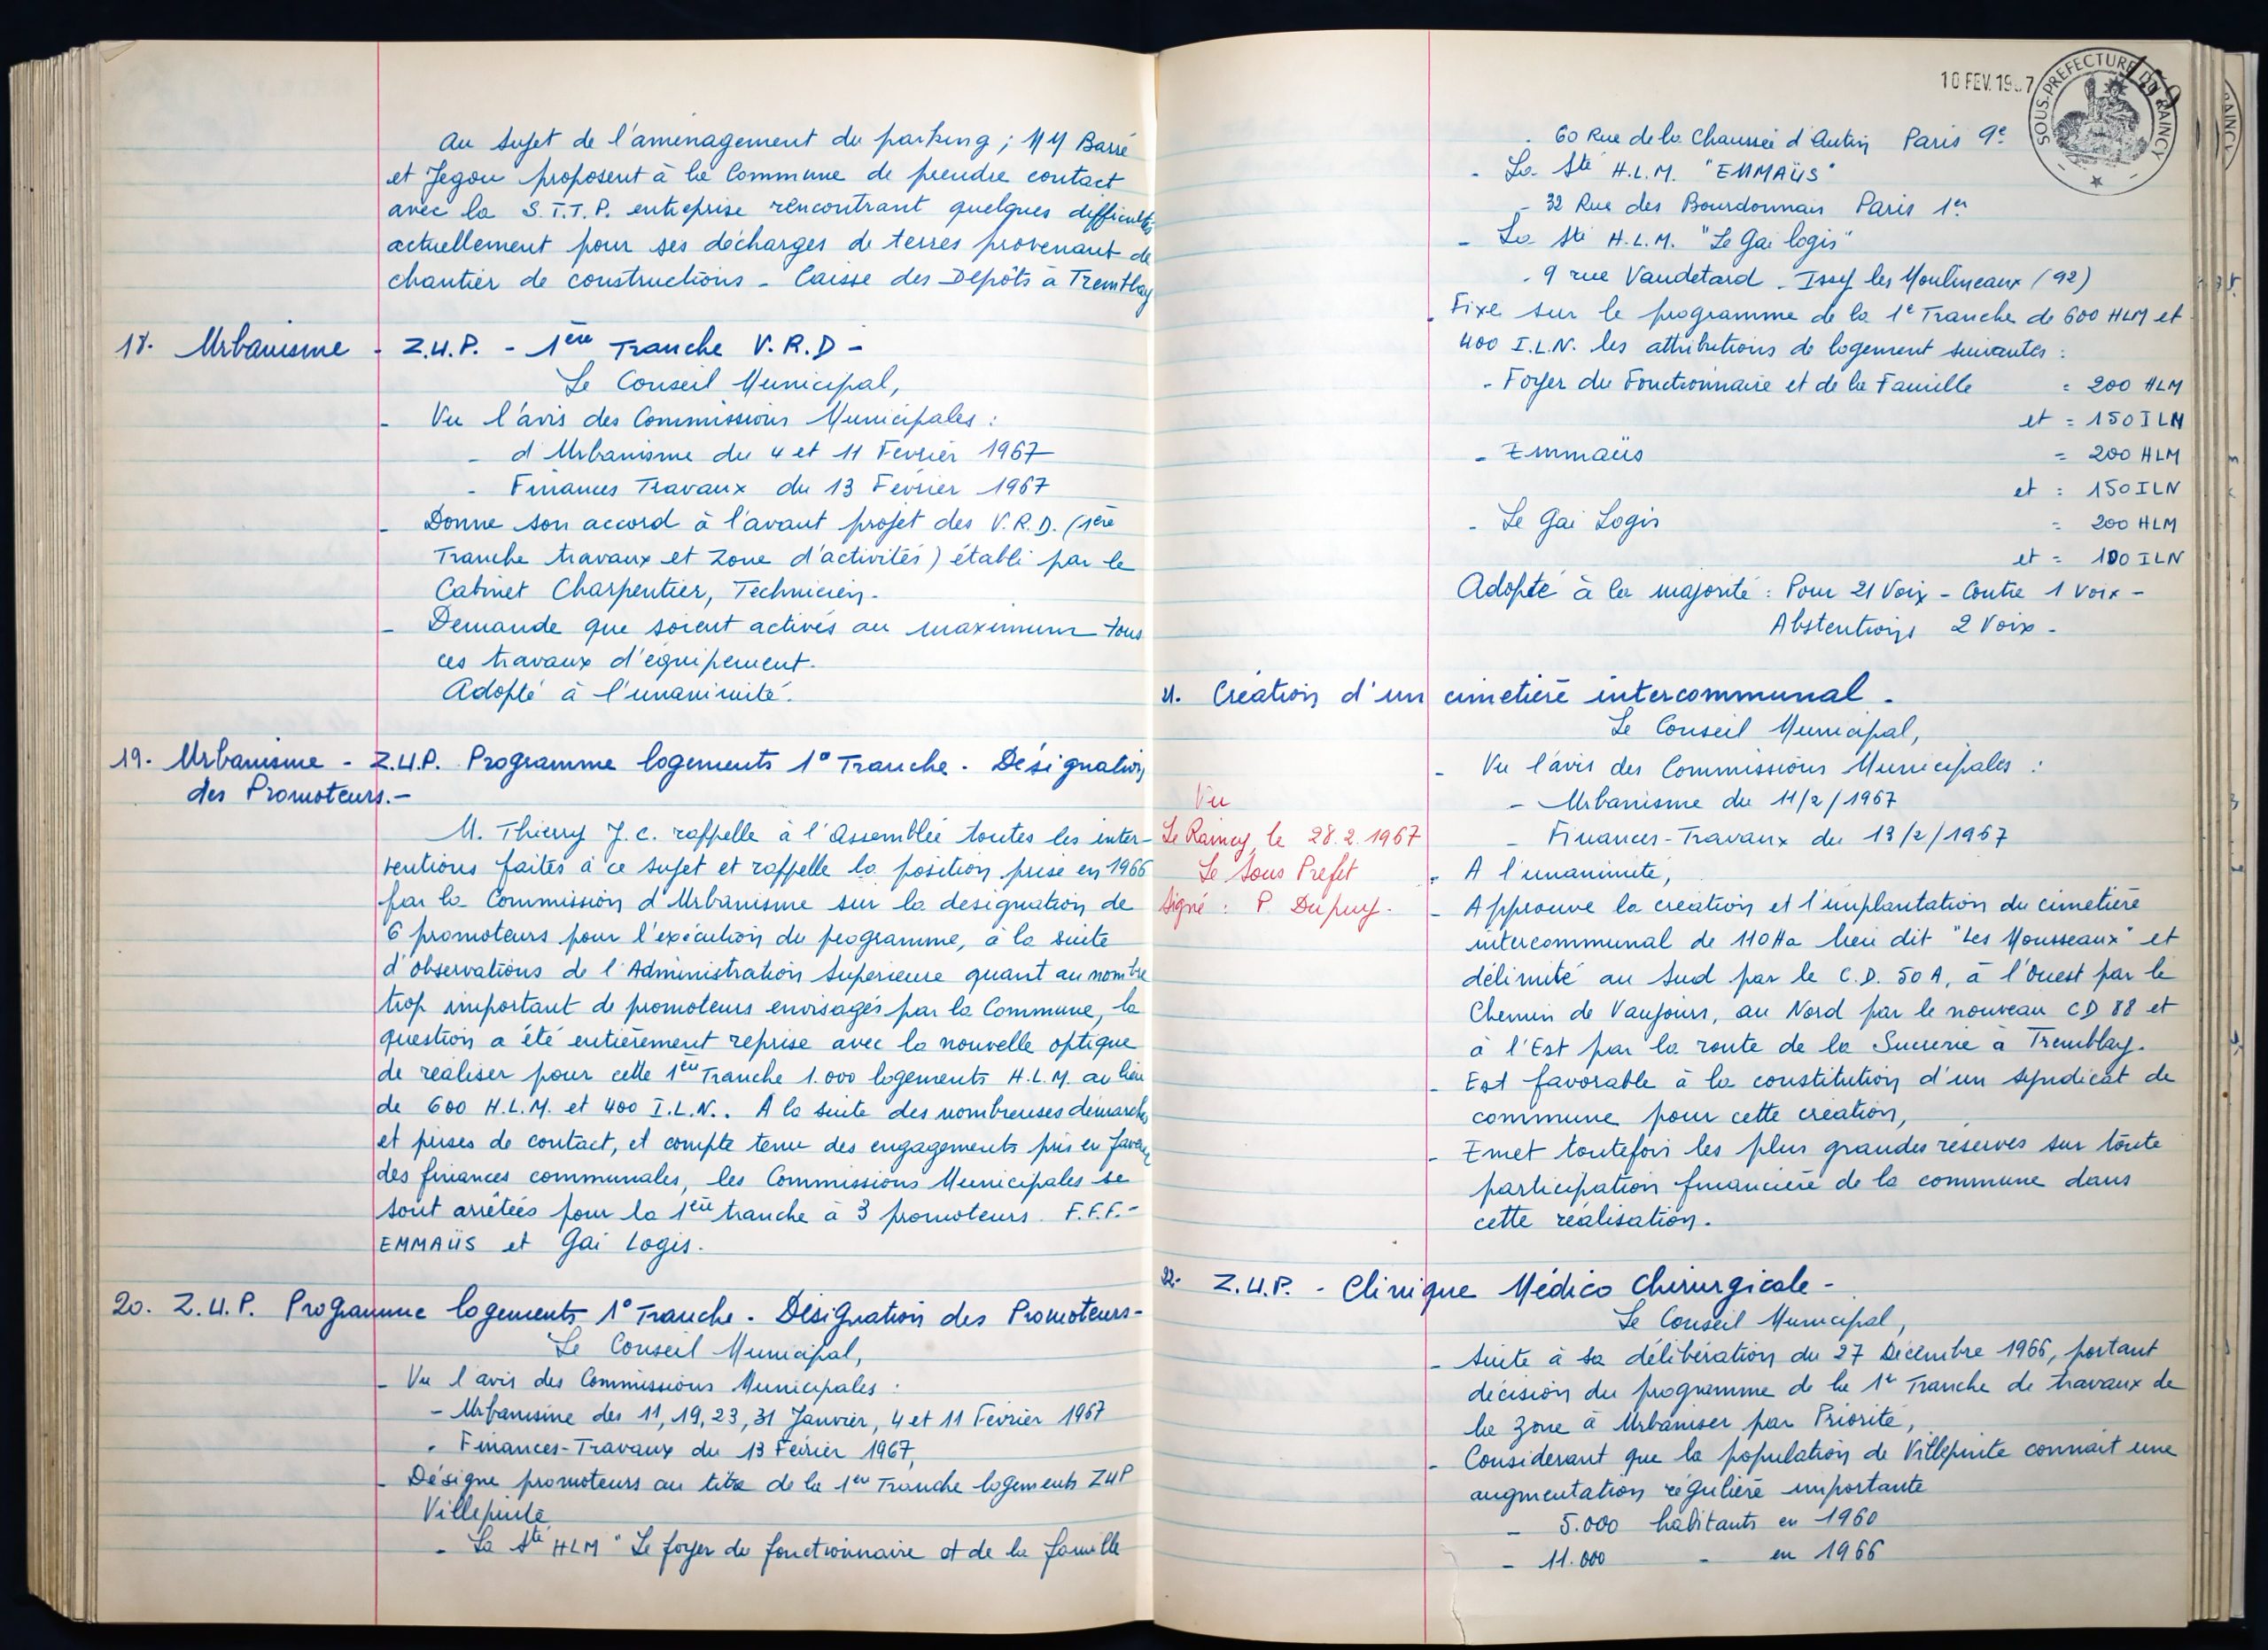 Au sujet de l'aménagement du parking ; MM Barré
et Jegou proposent à la Commune de prendre contact
avec la S.T.T.P. entreprise rencontrant quelques difficultés
actuellement pour ses décharges de terres provenant de
chantier de constructions - Caisse des Dépôts à Tremblay
18. Urbanisme - Z.U.P. - 1ère Tranche V.R.D -
Le Conseil Municipal,
- Vu l'avis des Commissions Municipales :
- d'Urbanisme du 4 et 11 Février 1967
- Finances Travaux du 13 Février 1967
- Donne son accord à l'avant projet des V.R.D. (1ère
Tranche travaux et Zone d'activités) établi par le
Cabinet Charpentier, Technicien.
- Demande que soient activés au maximum tous
ces travaux d'équipement.
Adopté à l'unanimité.
19. Urbanisme - Z.U.P. Programme logements 1° Tranche. Désignation
des Promoteurs.-
M. Thierry J.C. rappelle à l'Assemblée toutes les inter-
ventions faites à ce sujet et rappelle la position prise en 1966
par la Commission d'Urbanisme sur la désignation de
6 promoteurs pour l'exécution du programme, à la suite
d'observations de l'Administration Supérieure quant au nombre
trop important de promoteurs envisagés par la Commune, la
question a été entièrement reprise avec la nouvelle optique
de réaliser pour cette 1ère Tranche 1.000 logements H.L.M. au lieu
de 600 H.L.M. et 400 I.L.N.. A la suite des nombreuses démarches
et prises de contact, et compte tenu des engagements pris en faveur
des finances communales, les Commissions Municipales se
sont arrêtées pour la 1ère tranche à 3 promoteurs. F.F.F.-
EMMAÜS et Gai Logis.
20. Z.U.P. Programme logements 1° Tranche. Désignation des Promoteurs-
Le Conseil Municipal,
- Vu l'avis des Commissions Municipales :
- Urbanisme des 11, 19, 23, 31 Janvier, 4 et 11 Février 1967
. Finances-Travaux du 13 Février 1967,
- Désigne promoteurs au titre de la 1ère Tranche logements ZUP
Villepinte
- La Sté HLM "Le foyer du fonctionnaire et de la famille
10 FEV. 19 7
SOUS-PREFECTURE DU RAINCY
. 60 Rue de la Chaussée d'Antin Paris 9e
- La Sté H.L.M. "EMMAÜS"
- 32 Rue des Bourdonnais Paris 1er
- La Sté H.L.M. "Le Gai logis"
. 9 rue Vaudetard - Issy les Moulineaux (92)
. Fixe sur le programme de la 1e Tranche de 600 HLM et
400 I.L.N. les attributions de logement suivantes :
- Foyer du Fonctionnaire et de la Famille = 200 HLM
et = 150 ILN
- Emmaüs = 200 HLM
et = 150 ILN
- Le Gai Logis = 200 HLM
et = 100 ILN
Adopté à la majorité : Pour 21 Voix - Contre 1 Voix -
Abstentions 2 Voix -
21. Création d'un cimetière intercommunal -
Le Conseil Municipal,
- Vu l'avis des Commissions Municipales :
- Urbanisme du 11/2/1967
- Finances-Travaux du 13/2/1967
Vu
Le Raincy, le 28.2.1967
Le Sous Préfet
Signé : P. Dupuy.
- A l'unanimité,
- Approuve la création et l'implantation du cimetière
intercommunal de 110 Ha lieu dit "Les Mousseaux" et
délimité au Sud par le C.D. 50 A, à l'Ouest par le
Chemin de Vaujours, au Nord par le nouveau CD 88 et
à l'Est par la route de la Sucrerie à Tremblay.
- Est favorable à la constitution d'un syndicat de
commune pour cette création,
- Emet toutefois les plus grandes réserves sur toute
participation financière de la commune dans
cette réalisation.
22. Z.U.P. - Clinique Médico Chirurgicale -
Le Conseil Municipal,
- Suite à sa délibération du 27 Décembre 1966, portant
décision du programme de la 1e Tranche de travaux de
la Zone à Urbaniser par Priorité,
- Considérant que la population de Villepinte connait une
augmentation régulière importante
- 5.000 habitants en 1960
- 11.000 - en 1966